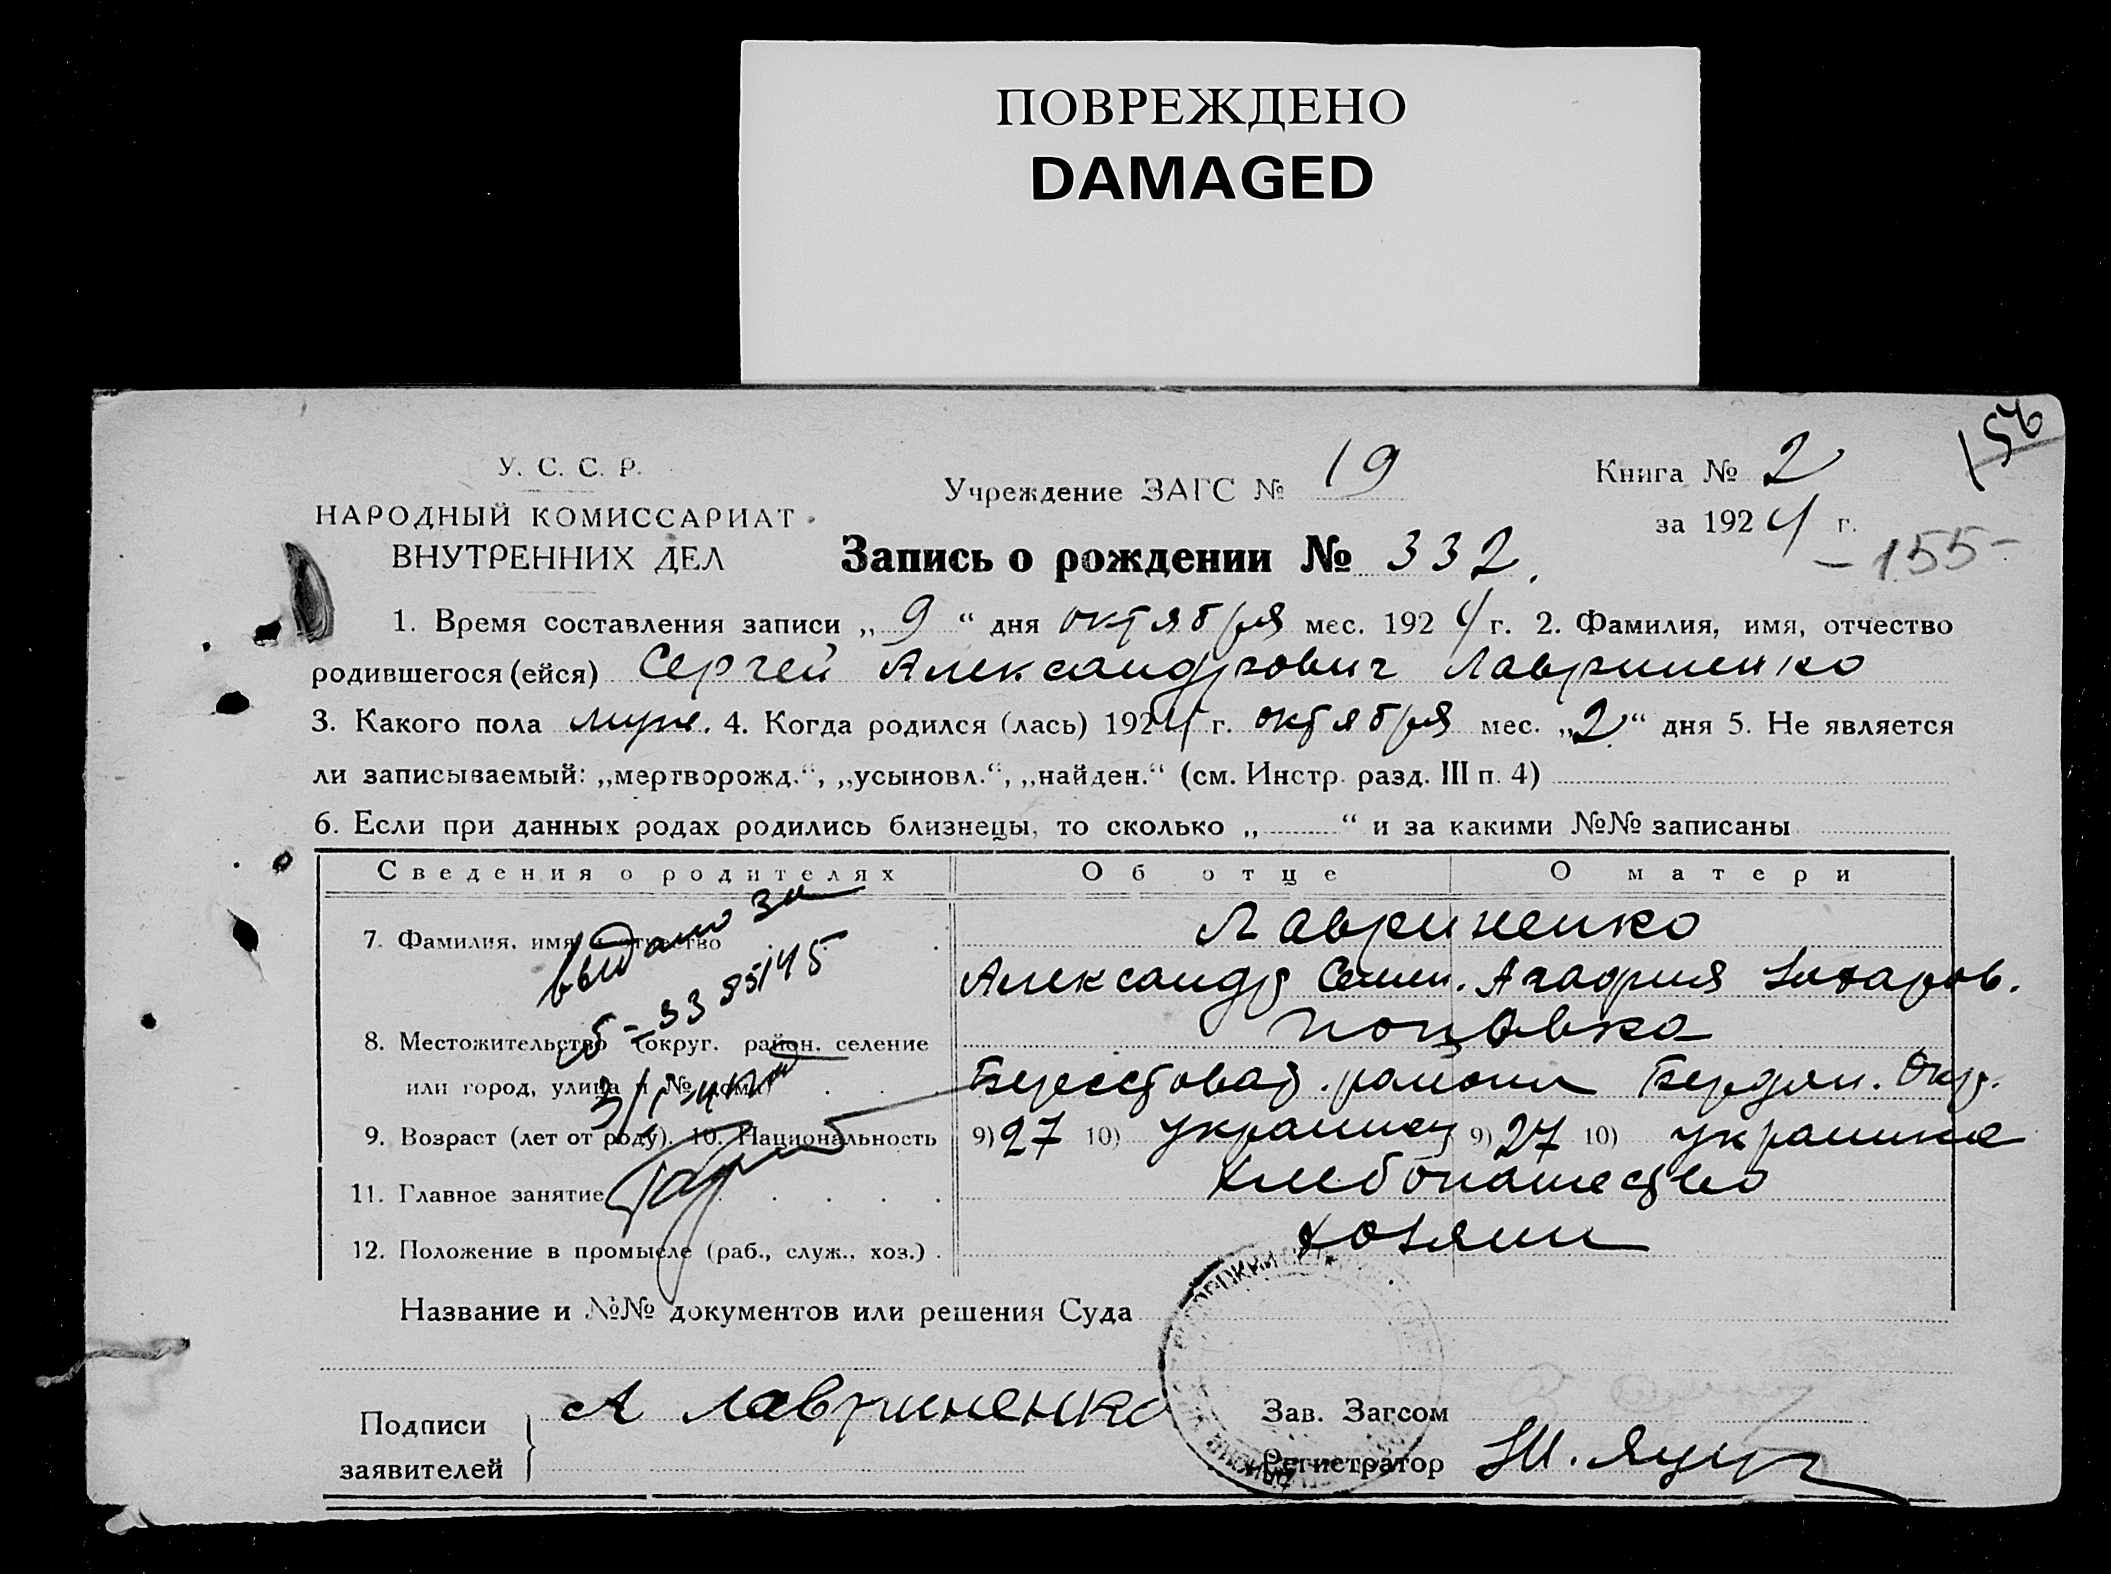 ПОВРЕЖДЕНО
DAMAGED
156
У. С. С. Р.
НАРОДНЫЙ КОМИССАРИАТ
ВНУТРЕННИХ ДЕЛ
Учреждение ЗАГС № 19
Книга № 2
за 1924 г.
- 155 -
Запись о рождении № 332.
1. Время составления записи „ 9 “ дня октября мес. 1924 г. 2. Фамилия, имя, отчество
родившегося (ейся) Сергей Александрович Лавриненко
3. Какого пола муж. 4. Когда родился (лась) 1924 г. октября мес. „2“ дня 5. Не является
ли записываемый: „мертворожд.“, „усыновл.“, „найден.“ (см. Инстр. разд. III п. 4)
6. Если при данных родах родились близнецы, то сколько „ “ и за какими №№ записаны
Сведения о родителях Об отце О матери
7. Фамилия, имя и отчество Лавриненко
Александр Семен. Агафия Захаров.
выдано за
8. Местожительство (округ. район. селение
или город, улица и № дома) Берестовац. района Бердян. Окр.
9. Возраст (лет от роду). 10. Национальность 9) 27 10) украинец 9) 27 10) украинка
11. Главное занятие Хлебопашество
12. Положение в промысле (раб., служ., хоз.) хозяин
Название и №№ документов или решения Суда
Подписи
заявителей
А Лавриненко
Зав. Загсом
Регистратор